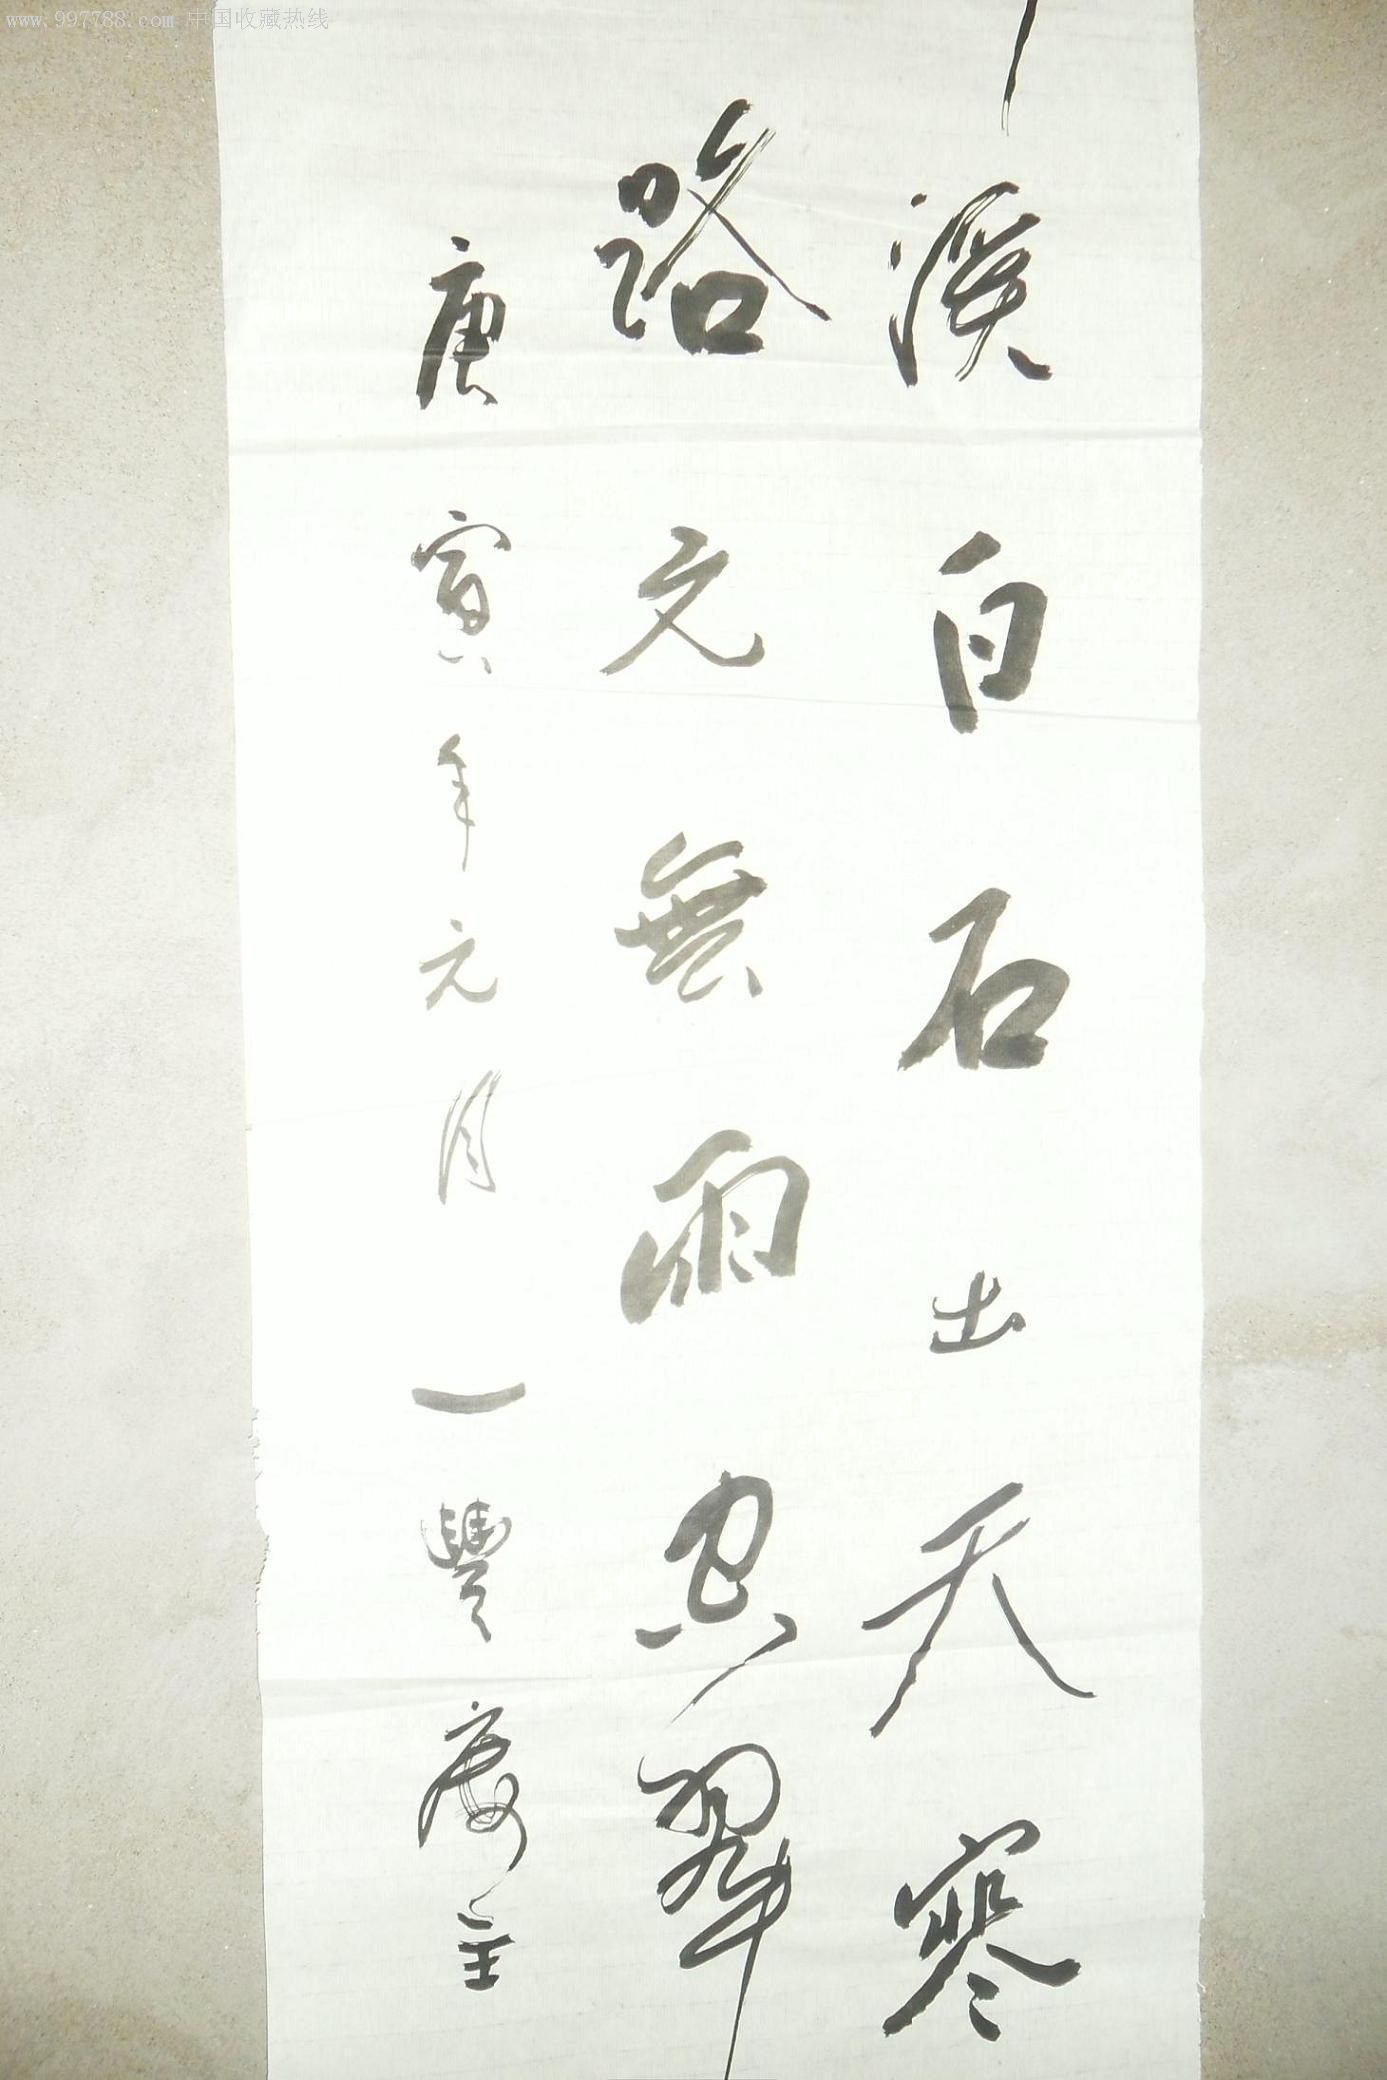 www.997788.com 中国收藏热线
溪白石出天寒
路元無雨空翠
庚寅年元月一豐廔主